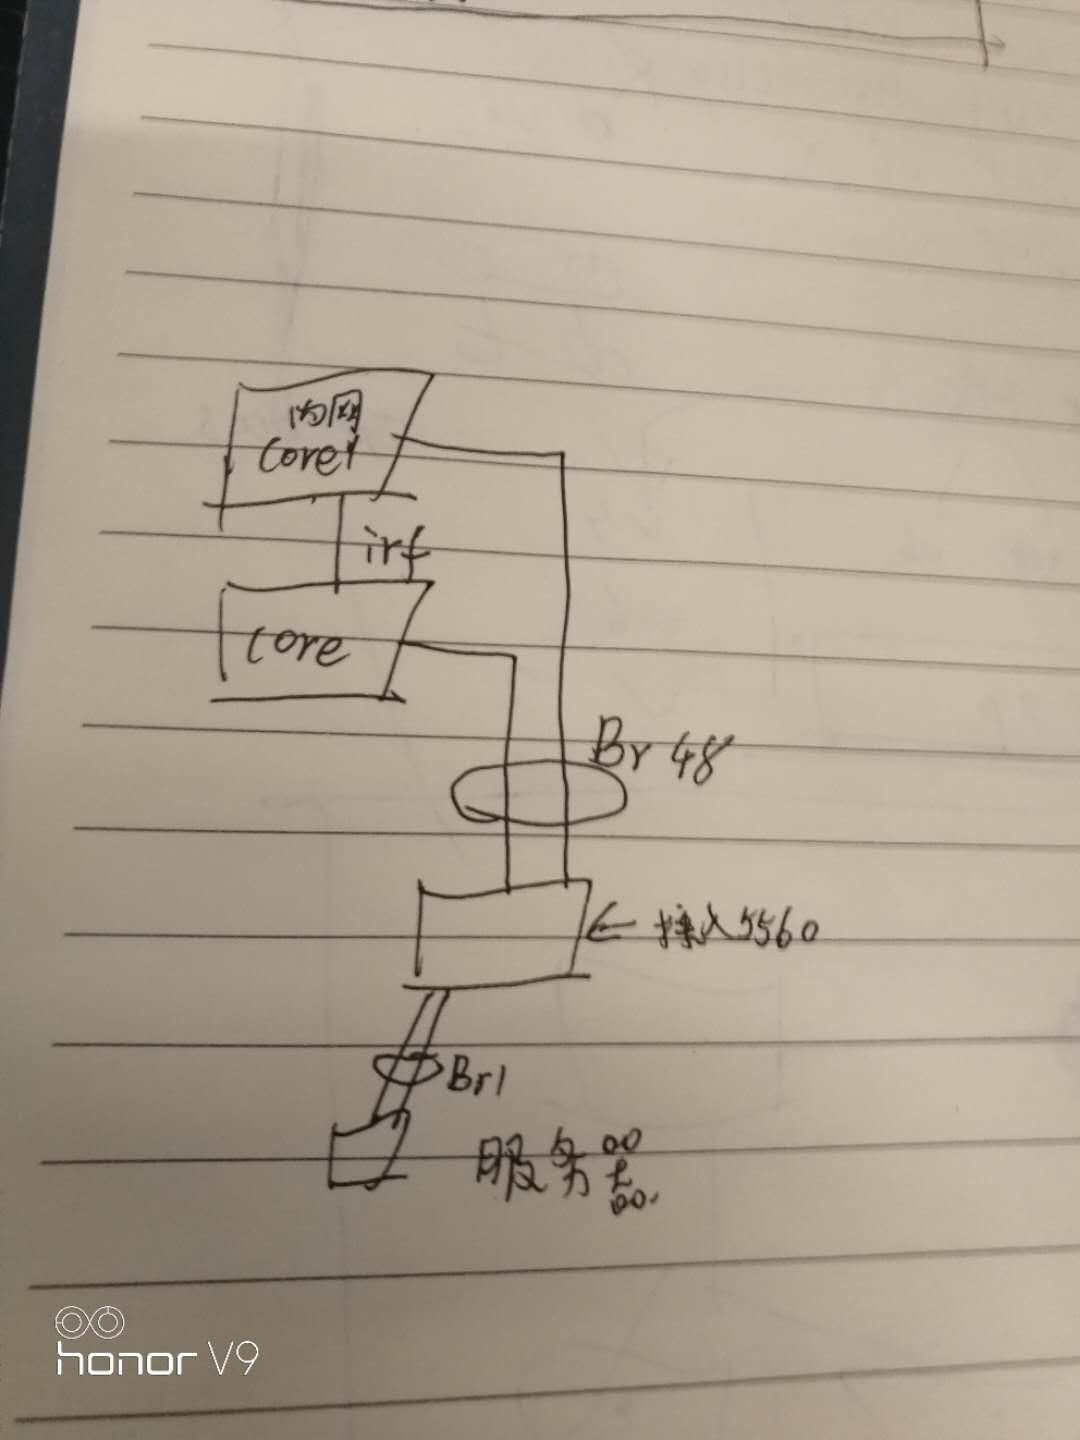 内网
Core1
irf
core
Br 48
← 接入5560
Br1
服务器
honor V9